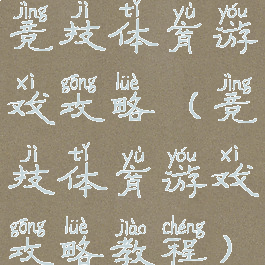 jìng jì tǐ yù yóu
竞技体育游
xì gōng lüè jìng
戏攻略（竞
jì tǐ yù yóu xì
技体育游戏
gōng lüè jiào chéng
攻略教程）